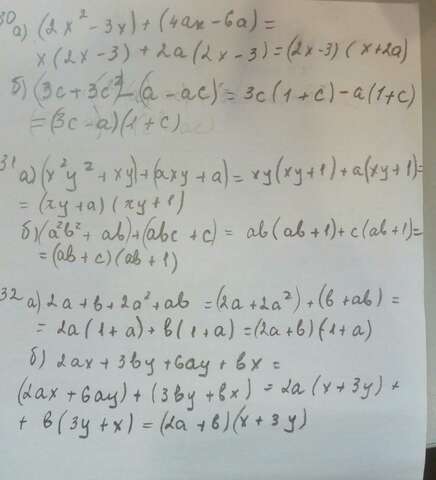 30 а) (2x² - 3x) + (4ax - 6a) =
x(2x - 3) + 2a(2x - 3) = (2x-3)(x+2a)
б) (3c + 3c²) - (a - ac) = 3c(1+c) - a(1+c)
= (3c - a)(1+c)
31 а) (x²y² + xy) + (axy + a) = xy(xy+1) + a(xy+1) =
= (xy + a)(xy + 1)
б) (a²b² + ab) + (abc + c) = ab(ab+1) + c(ab+1) =
= (ab + c)(ab + 1)
32 а) 2a + b + 2a² + ab = (2a + 2a²) + (b + ab) =
= 2a(1+a) + b(1+a) = (2a+b)(1+a)
б) 2ax + 3by + 6ay + bx =
(2ax + 6ay) + (3by + bx) = 2a(x + 3y) +
+ b(3y + x) = (2a + b)(x + 3y)